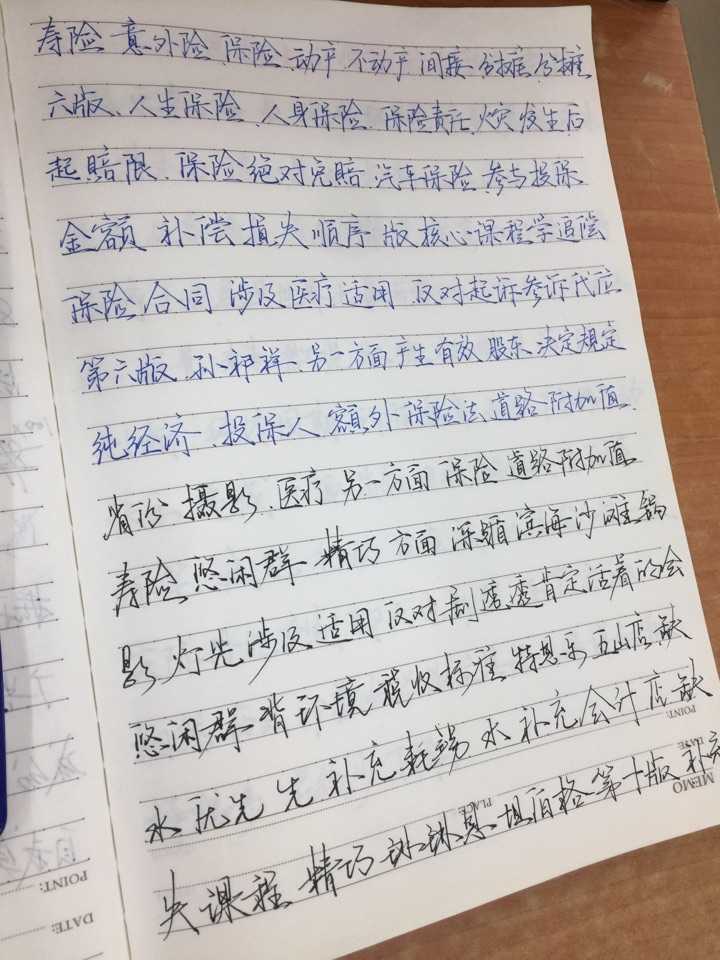 寿险 意外险 保险 动产 不动产 间接 分摊 分摊
六版、人生保险、人身保险、保险责任 火灾 发生后
起赔限、保险绝对免赔 汽车保险 参与投保
金额 补偿 损失 顺序 版 核心课程学 追偿
保险 合同 涉及医疗适用 仅对起诉参诉代位
第六版 孙祁祥 另一方面产生有效 股东 决定规定
纯经济、投保人 额外保险法 道路附加值
省份 摄影、医疗 另一方面 保险 道路附加值
寿险 悠闲群 精巧 方面 深 滨海沙滩 锅
影 灯光涉及 适用 仅对 透肯定活着的会
悠闲群 背环境 税收标准 特恩乐 五山店 缺
水 优先 先 补充 耗锅 水 补充会计店缺
失 课程 精巧 坦百格 第十版 补充
POINT:
DATE:
MEMO
PLACE:
POINT:
DATE: